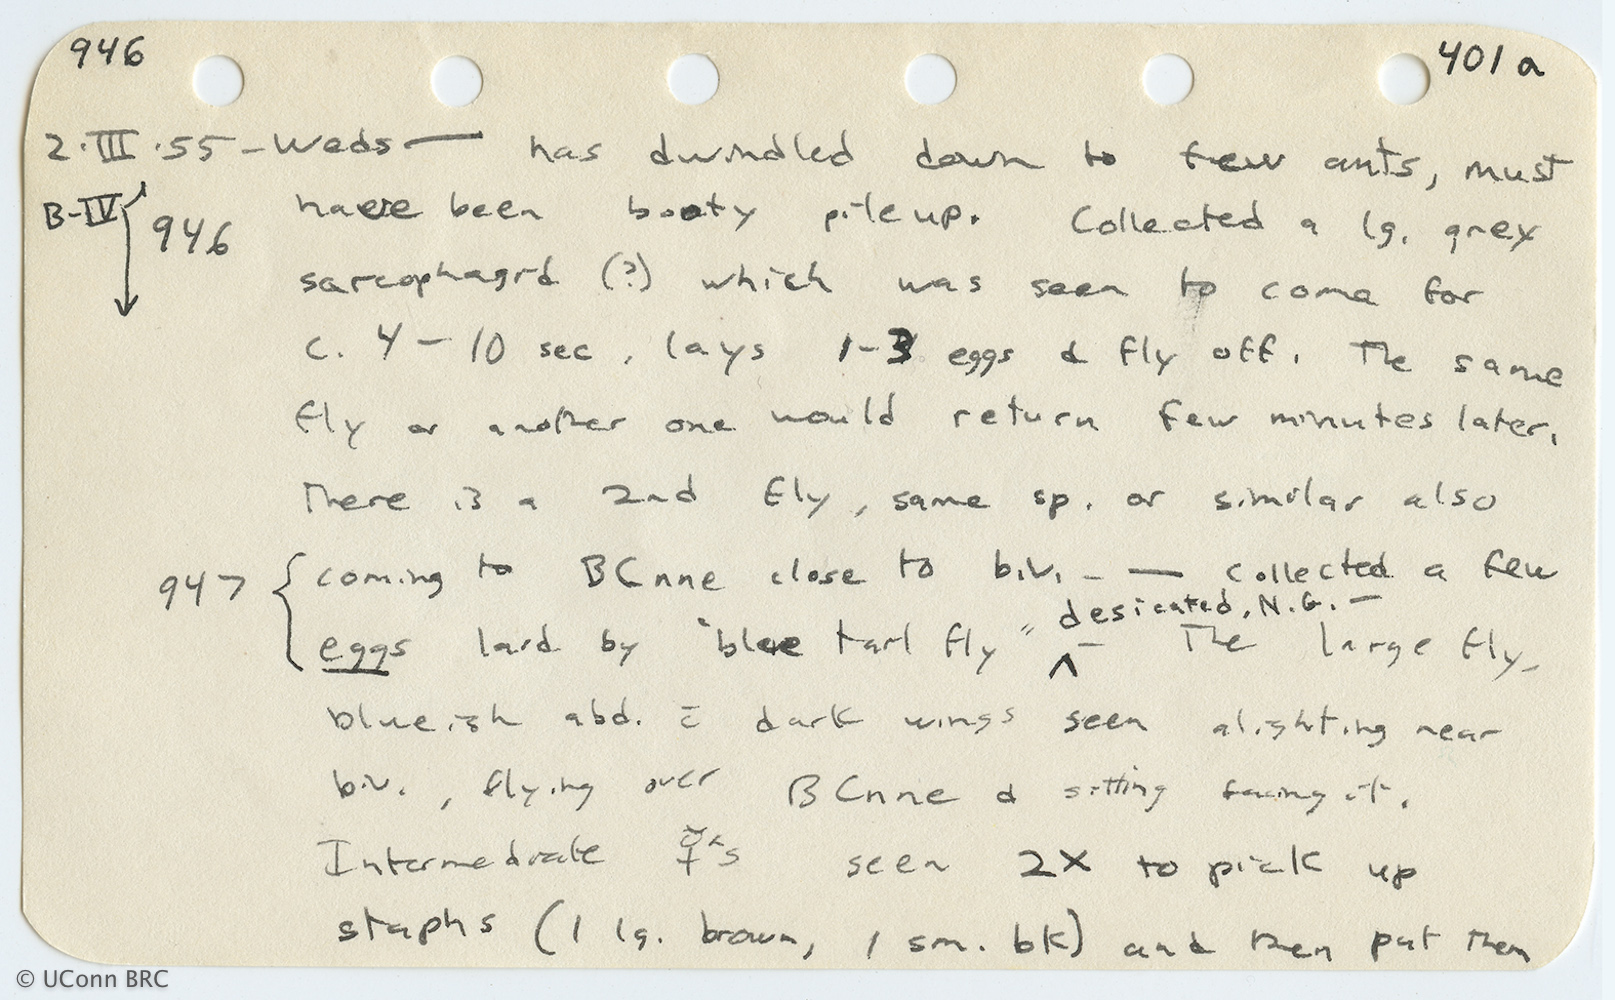 946
401a
2·III·55 - Weds — has dwindled down to few ants, must
B-IV 946 have been booty pile up. Collected a lg. grey
sarcophagid (?) which was seen to come for
c. 4-10 sec, lays 1-3 eggs & fly off. The same
fly or another one would return few minutes later.
There is a 2nd fly, same sp. or similar also
947 { coming to BCnne close to biv. - — collected a few
desicated, N.G. -
eggs laid by "blue tail fly" ^ - The large fly,
blueish abd. c̄ dark wings seen alighting near
biv., flying over BCnne & sitting facing it.
Intermediate ☿'s seen 2X to pick up
staphs (1 lg. brown, 1 sm. bk) and then put them
© UConn BRC